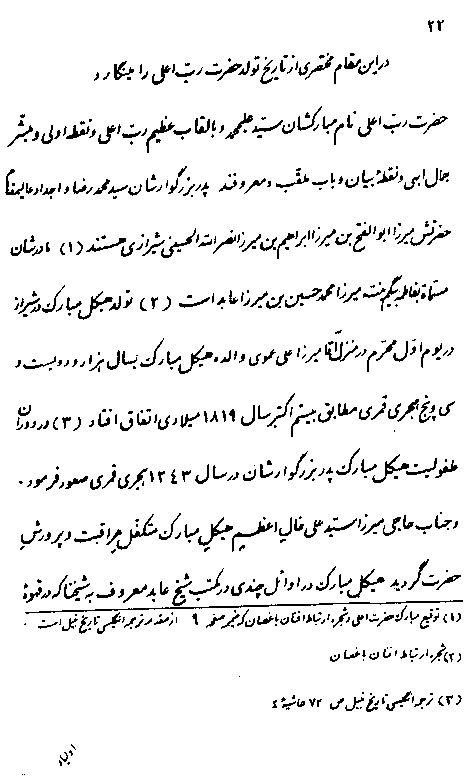 ۲۲
در این مقام مختصری از تاریخ تولد حضرت ربّ اعلی را مینگارد
حضرت ربّ اعلی نام مبارکشان سیّد علیمحمد و بالقاب عظیم ربّ اعلی و نقطه اولی و مبشّر
جمال ابهی و نقطهٔ بیان و باب ملقّب و معروفند پدر بزرگوارشان سید محمد رضا و اجداد عالیمقام
حضرتش میرزا ابوالفتح بن میرزا ابراهیم بن میرزا نصرالله الحسینی شیرازی هستند (۱) مادرشان
مسمّاة بفاطمه بیگم بنت میرزا محمد حسین بن میرزا عابد است (۲) تولد هیکل مبارک در شیراز
در یوم اوّل محرّم در منزل آقا میرزا علی عموی والده هیکل مبارک بسال هزار و دویست و
سی و پنج هجری قمری مطابق بیستم اکتبر سال ۱۸۱۹ میلادی اتفاق افتاد (۳) در دوران
طفولیت هیکل مبارک پدر بزرگوارشان در سال ۱۲۴۳ هجری قمری صعود فرمود.
و جناب حاجی میرزا سید علی خال اعظم هیکل مبارک متکفّل مراقبت و پرورش
حضرت گردید هیکل مبارک در اوائل چندی در مکتب شیخ عابد معروف به شیخنا که در قهوهٔ
(۱) توقیع مبارک حضرت اعلی و شجره ارتباط افنان باغصان که ضمیمه صفحه ۹ از مقدمه ترجمه انگلیسی تاریخ نبیل است
(۲) شجره ارتباط افنان باغصان
(۳) ترجمه انگلیسی تاریخ نبیل ص ۷۲ حاشیهٔ ٤
اولیاء